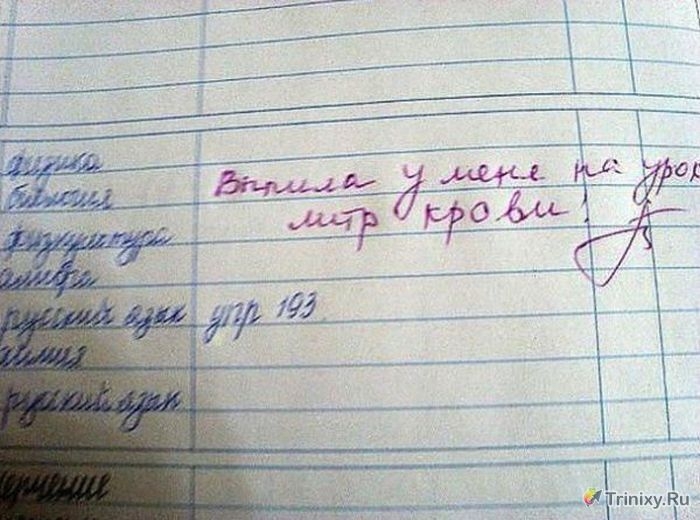 физика
Выпила у меня на урок
биология
литр крови!
физкультура
алгебра
русский язык упр 193
химия
русский язык
черчение
Trinixy.Ru